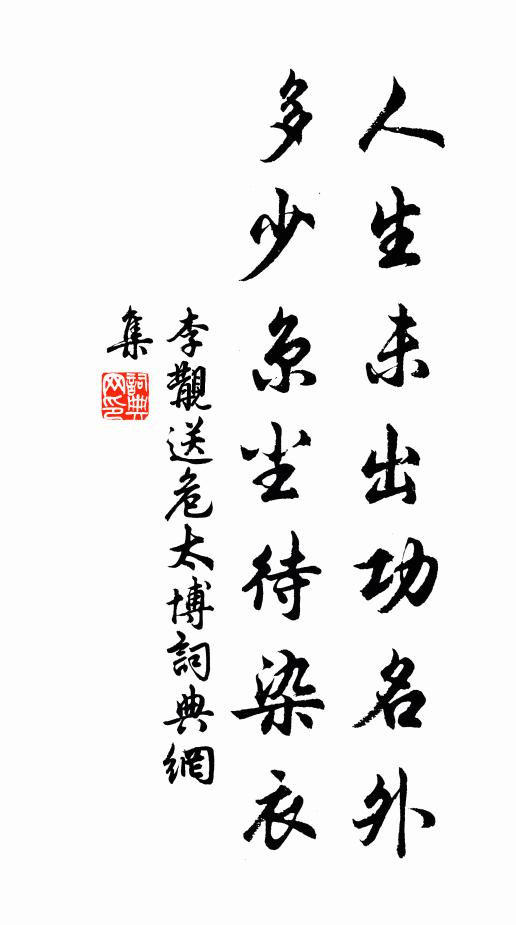 人生未出功名外
多少京尘待染衣
李覯送危太博詞典網
集
詞典網印